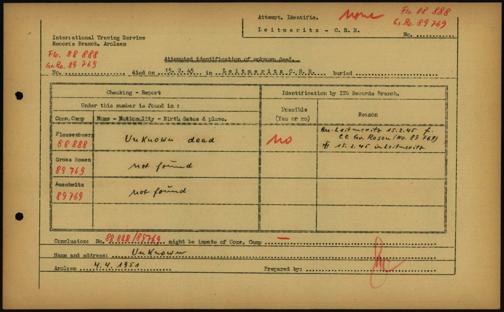 Attempt. Identific. none Flo. 88 888
Gr. Ro. 89 769
Leitmeritz - C.S.R. No.
International Tracing Service
Records Branch, Arolsen
Flo. 88 888
Gr. Ro. 89 769
Attempted identification of unknown dead.
No. died on 15.2.45 in Leitmeritz C.S.R. buried
Checking - Report
Identification by ITS Records Branch.
Under this number is found in :
Possible
(Yes or no)
Reason
Conc. Camp
Name - Nationality - Birth dates & place.
Flossenbuerg
88 888
Unknown dead
no
15.2.45 f.
Gr. Rosen (No. 89 769)
15.2.45 in Leitmeritz
Gross Rosen
89 769
not found
Auschwitz
89 769
not found
Conclusion: No. 88 888/89769 might be inmate of Conc. Camp —
Name and address: Unknown
Arolsen 4. 4. 1951 Prepared by: